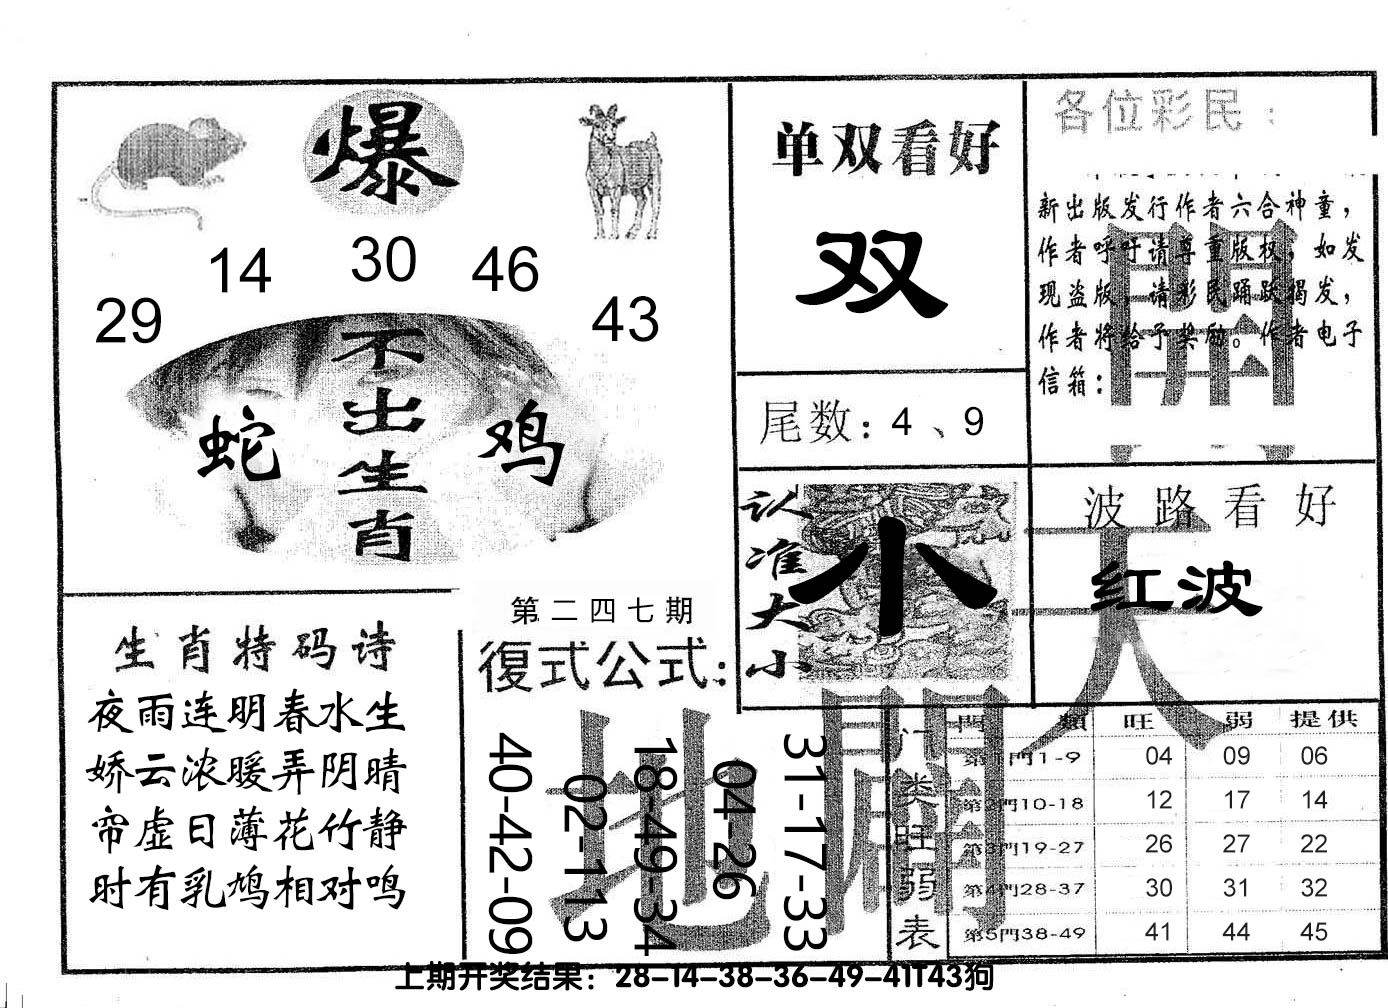 爆
29 14 30 46 43
不出生肖
蛇 鸡
单双看好
双
尾数：4、9
认准大小
小
各位彩民：
新出版发行作者六合神童，
作者呼吁请尊重版权，如发
现盗版，请彩民踊跃揭发，
作者将给予奖励。作者电子
信箱：
開
波路看好
红波
天
生肖特码诗
夜雨连明春水生
娇云浓暖弄阴晴
帘虚日薄花竹静
时有乳鸠相对鸣
第二四七期
復式公式：
40-42-09
02-113
18-49-34
04-26
31-17-33
地
门类旺弱表
門類 旺 弱 提供
第1門1-9 04 09 06
第2門10-18 12 17 14
第3門19-27 26 27 22
第4門28-37 30 31 32
第5門38-49 41 44 45
上期开奖结果：28-14-38-36-49-41T43狗